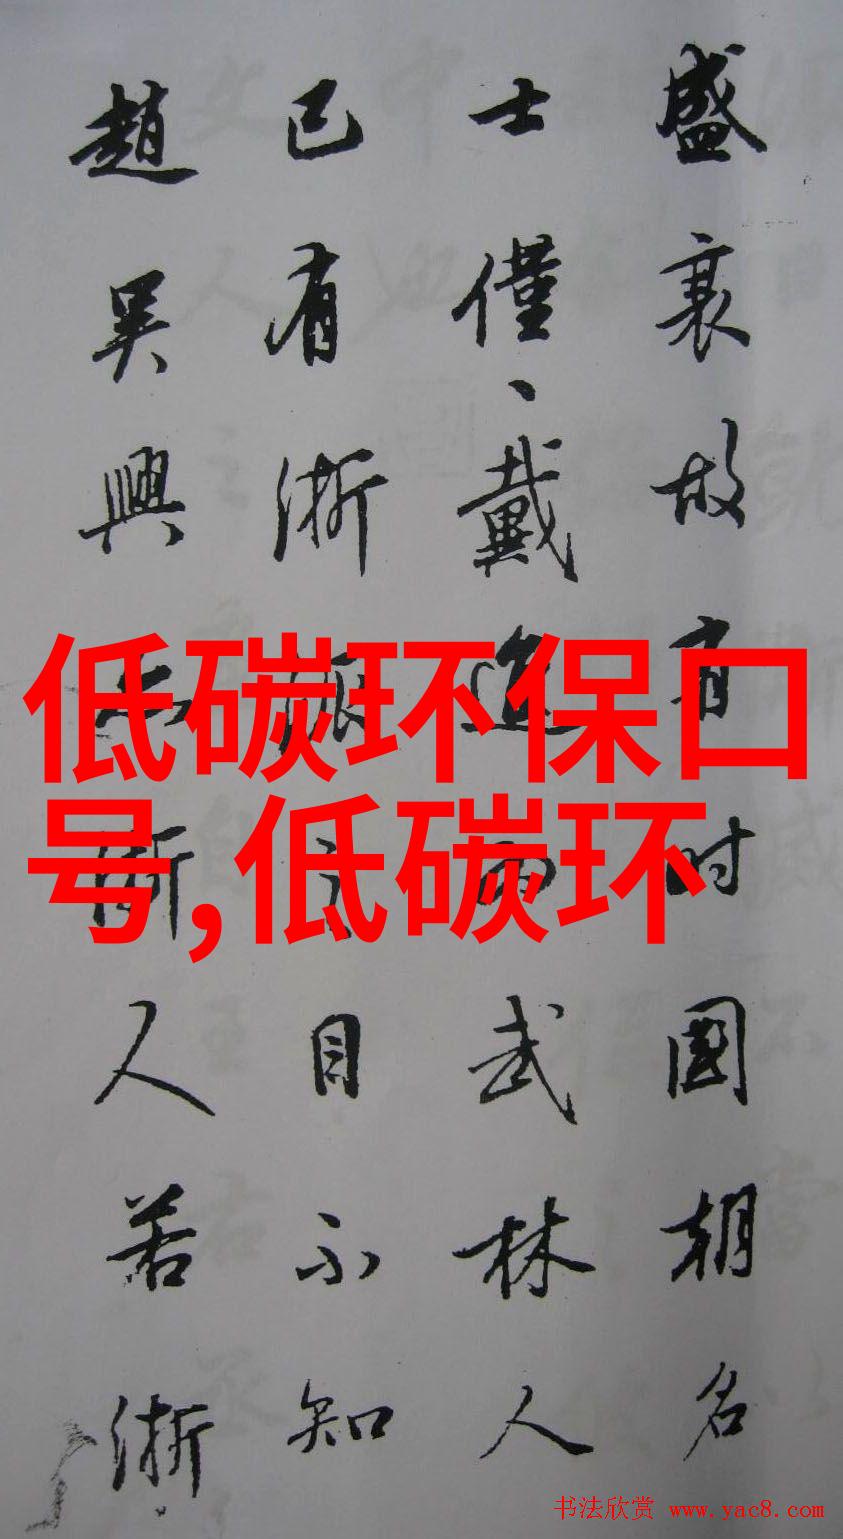 盛衰故有时國朝名
士僅、戴進武林人
已有浙派目不知
趙吳興浙人若浙
低碳环保口
号,低碳环
书法欣赏 www.yac8.com